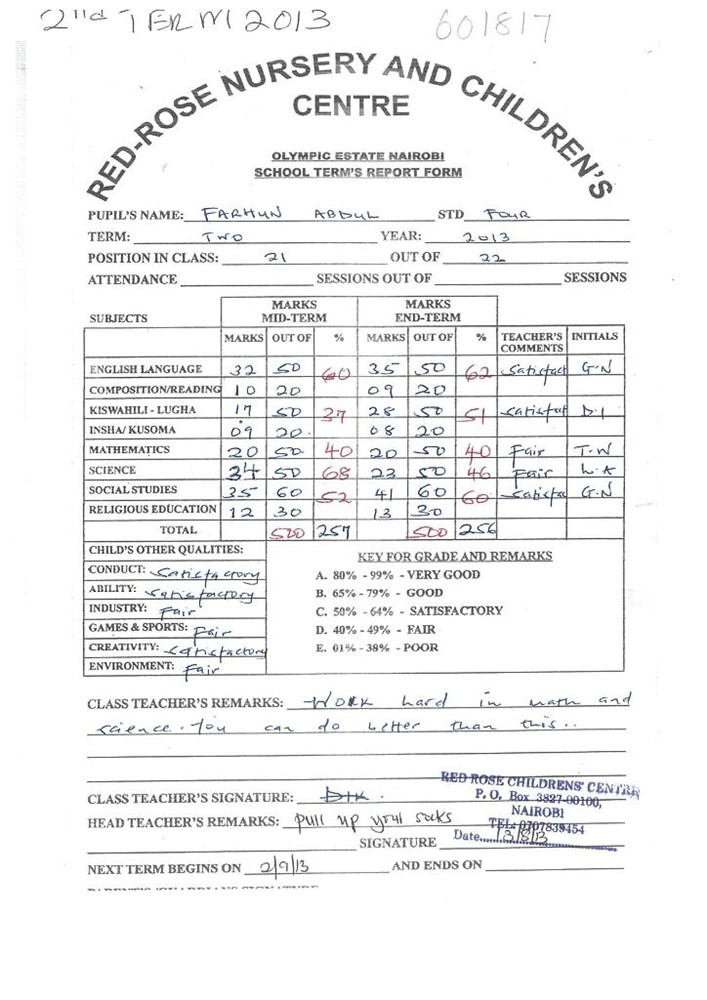 2nd TERM 2013
601817
RED-ROSE NURSERY AND CHILDREN'S
CENTRE
OLYMPIC ESTATE NAIROBI
SCHOOL TERM'S REPORT FORM
PUPIL'S NAME: FARHUN ABDUL STD FOUR
TERM: TWO YEAR: 2013
POSITION IN CLASS: 21 OUT OF 22
ATTENDANCE SESSIONS OUT OF SESSIONS
SUBJECTS MARKS MID-TERM MARKS END-TERM
MARKS OUT OF % MARKS OUT OF % TEACHER'S COMMENTS INITIALS
ENGLISH LANGUAGE 32 50 60 35 50 62 Satisfact G.N
COMPOSITION/READING 10 20 09 20
KISWAHILI - LUGHA 17 50 37 28 50 51 satisfat D.I
INSHA/ KUSOMA 09 20. 08 20
MATHEMATICS 20 50 40 20 50 40 Fair T.W
SCIENCE 34 50 68 23 50 46 Fair L.K
SOCIAL STUDIES 35 60 52 41 60 60 satisfa G.N
RELIGIOUS EDUCATION 12 30 13 30
TOTAL 500 257 500 256
CHILD'S OTHER QUALITIES:
CONDUCT: Satisfactory
ABILITY: satisfactory
INDUSTRY: Fair
GAMES & SPORTS: Fair
CREATIVITY: satisfactory
ENVIRONMENT: Fair
KEY FOR GRADE AND REMARKS
A. 80% - 99% - VERY GOOD
B. 65% - 79% - GOOD
C. 50% - 64% - SATISFACTORY
D. 40% - 49% - FAIR
E. 01% - 38% - POOR
CLASS TEACHER'S REMARKS: Work hard in math and
science. You can do better than this..
CLASS TEACHER'S SIGNATURE:
HEAD TEACHER'S REMARKS: pull up your socks
SIGNATURE
RED ROSE CHILDRENS' CENTRE
P. O. Box 3827-00100,
NAIROBI
TEL: 0707839454
Date 13/8/13
NEXT TERM BEGINS ON 2/9/13 AND ENDS ON